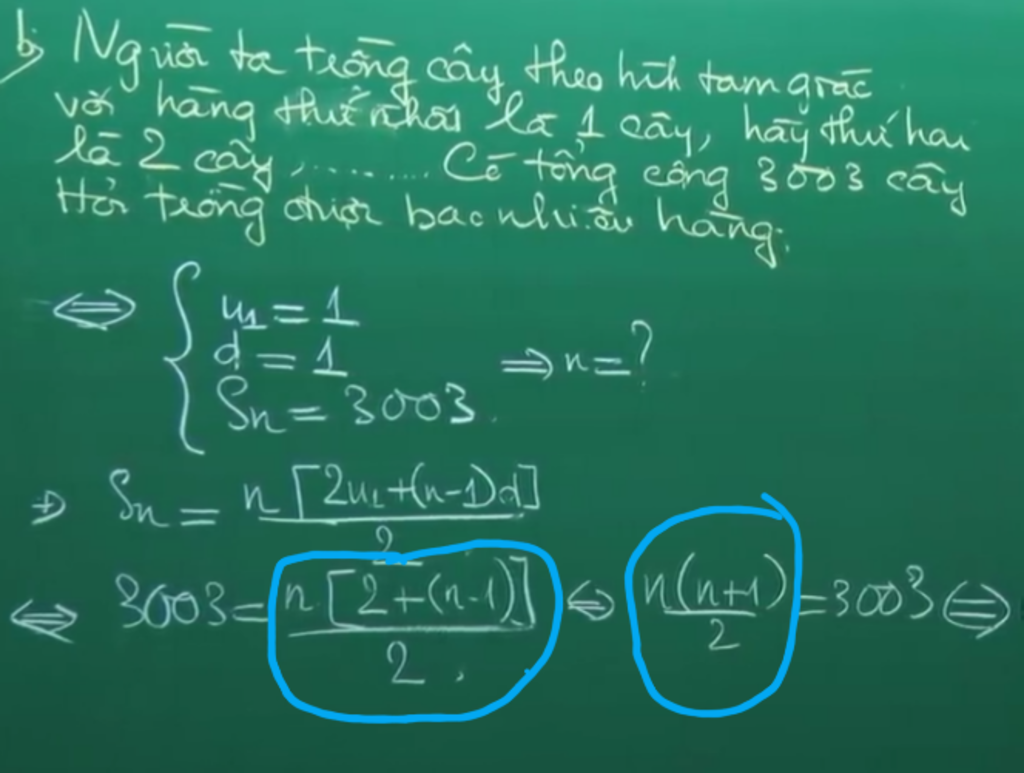 b, Người ta trồng cây theo hìh tam giác
với hàng thứ nhất là 1 cây, hàg thứ hai
là 2 cây, ........ Có tổng cộng 3003 cây
Hỏi trồng được bao nhiêu hàng.
⇔ { u₁ = 1
d = 1 ⇒ n = ?
Sn = 3003.
⇒ Sn = n[2u₁+(n-1)d] / 2
⇔ 3003 = n.[2+(n-1)] / 2 . ⇔ n(n+1) / 2 = 3003 ⇔